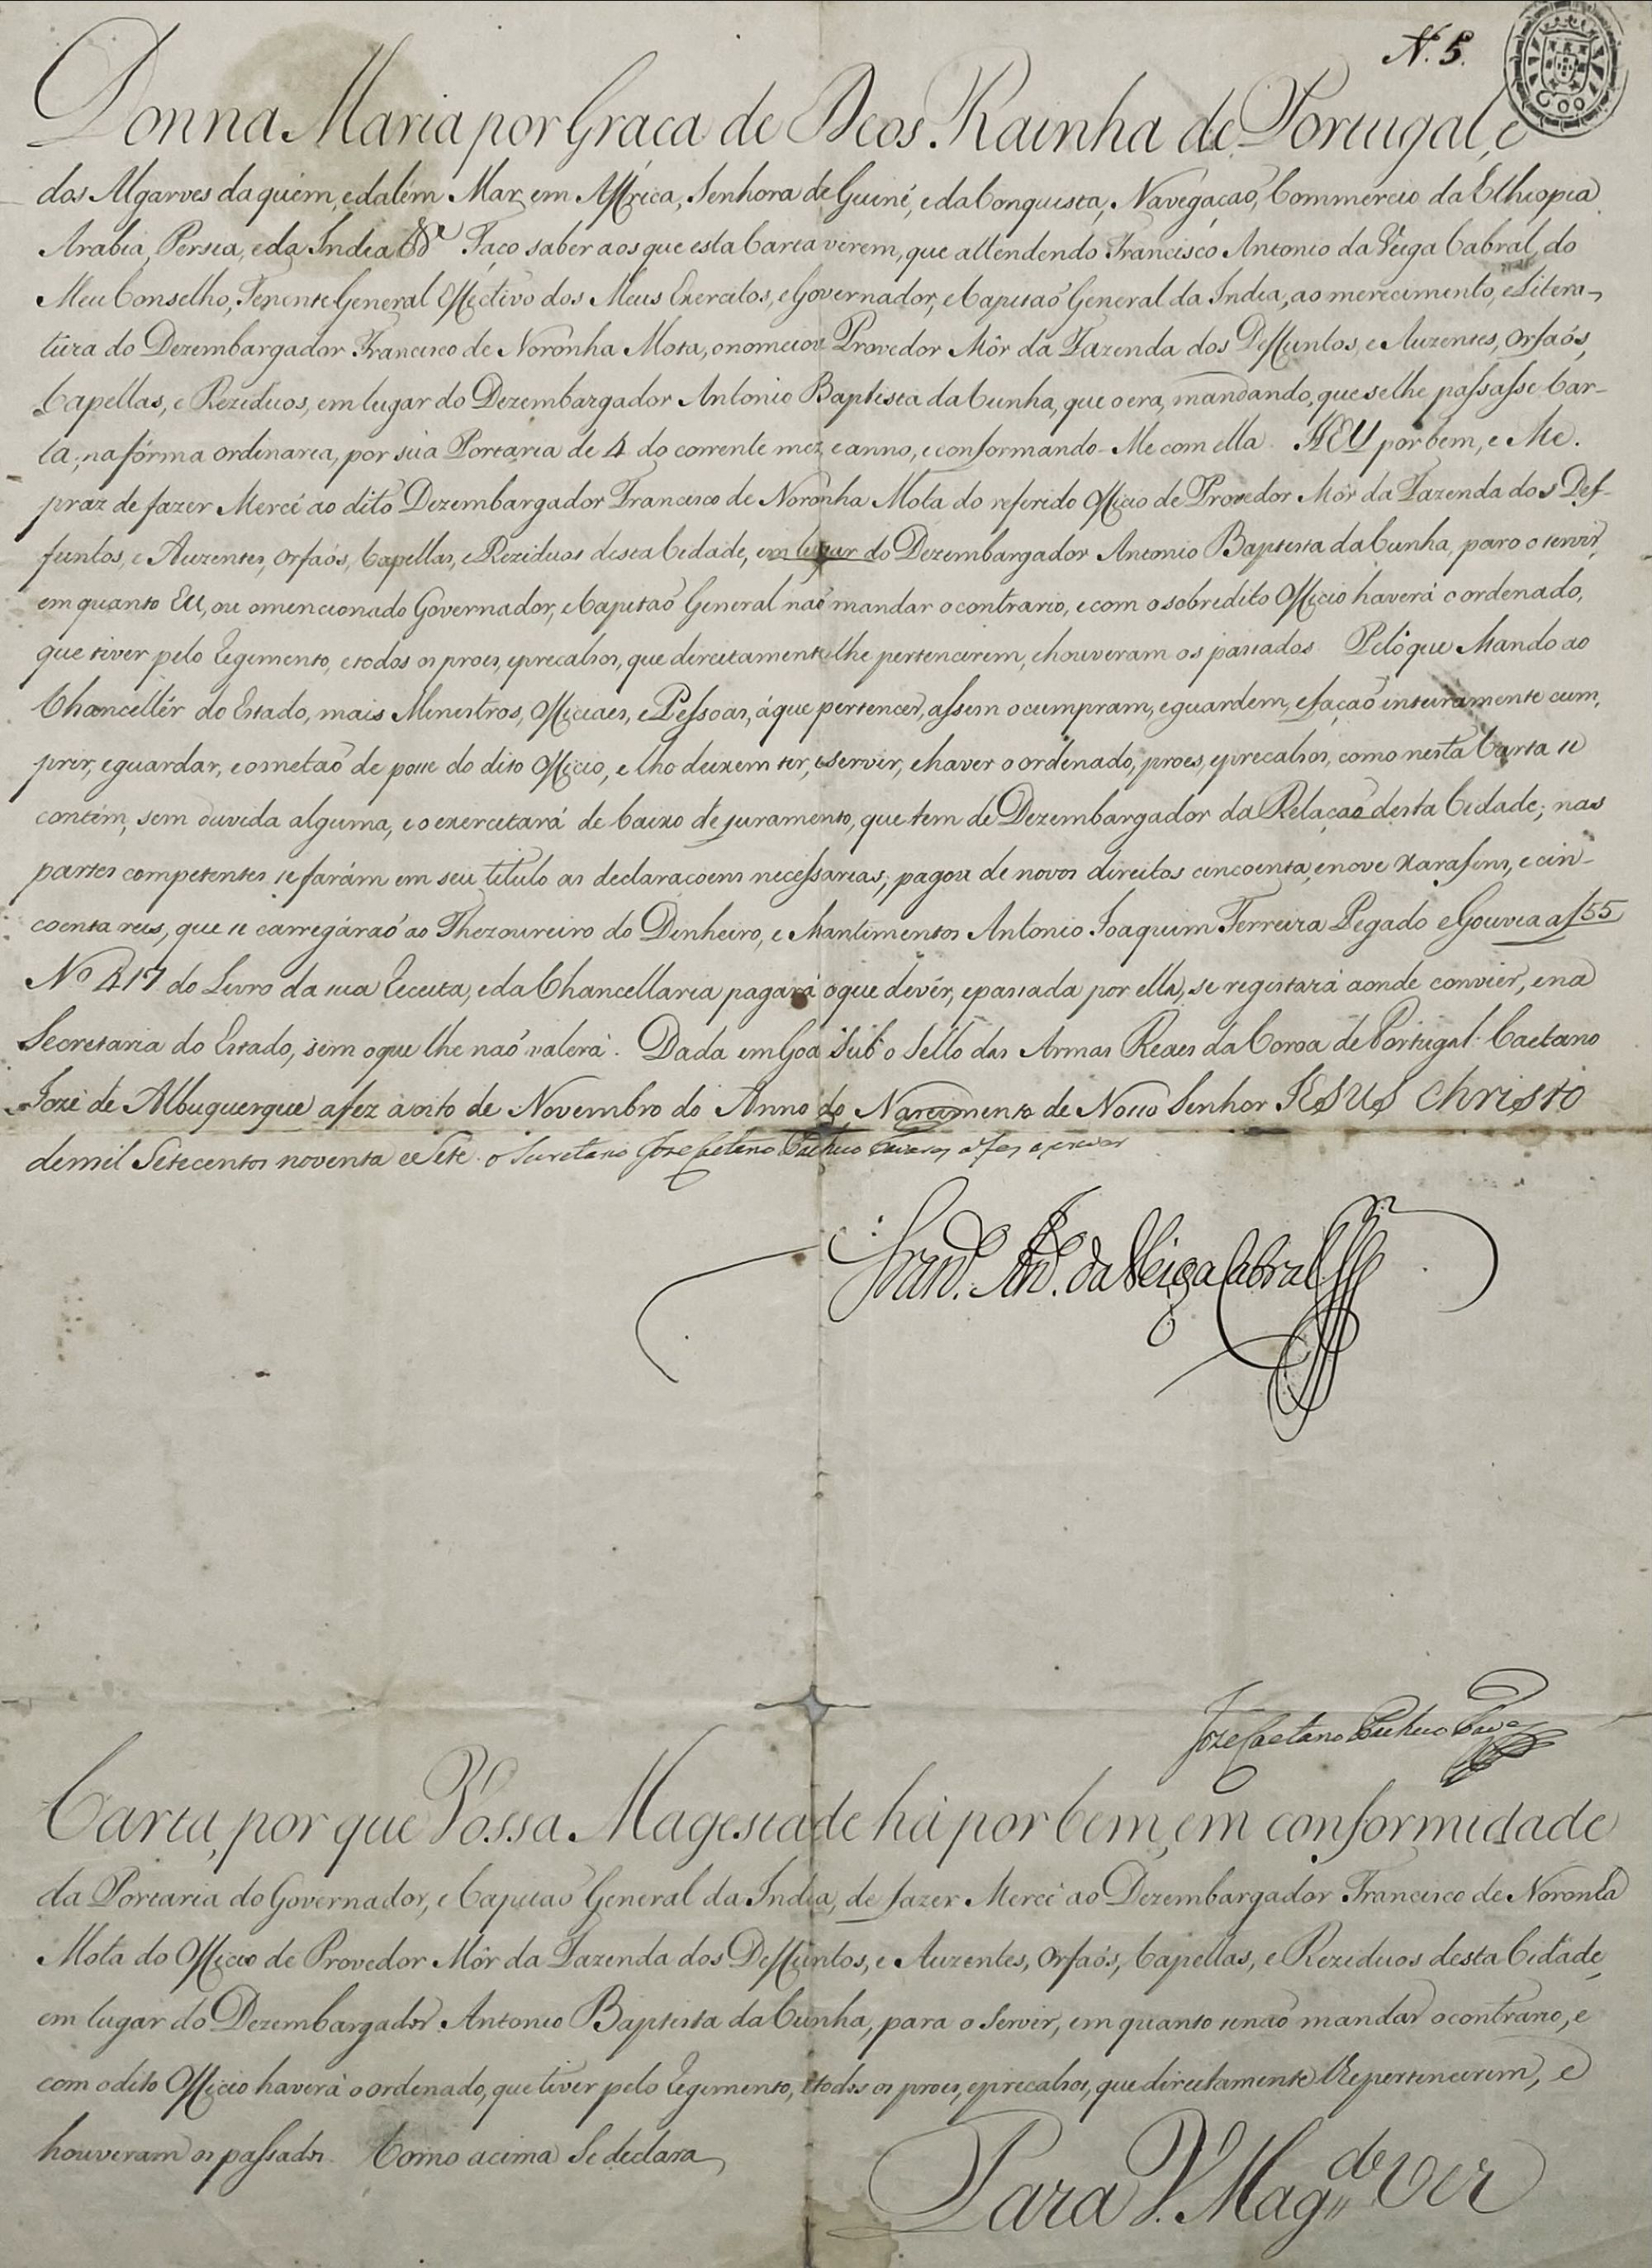 N. 5.
GOA
Donna Maria por Graca de Deos Rainha de Portugal, e
dos Algarves da quem, e dalém Mar, em Affrica, Senhora de Guiné, e da Conquista, Navegação, Commercio da Ethiopia
Arabia, Persia, e da India &ª Faço saber aos que esta Carta virem, que attendendo Francisco Antonio da Veiga Cabral, do
Meu Conselho, Tenente General Effectivo dos Meus Exercitos, e Governador, e Capitaõ General da India, ao merecimento, e Litera-
tura do Dezembargador Francisco de Noronha Mota, o nomeiou Provedor Môr da Fazenda dos Deffuntos, e Auzentes, Orfaós,
Capellas, e Reziduos, em lugar do Dezembargador Antonio Baptista da Cunha, que o era, mandando, que se lhe passasse Car-
ta, na fórma ordinaria, por súa Portaria de 4 do corrente mez, e anno, e conformando-Me com ella. HEY por bem, e Me
praz de fazer Mercé ao dito Dezembargador Francisco de Noronha Mota do referido Officio de Provedor Mór da Fazenda dos Def-
funtos, e Auzentes, Orfaós, Capellas, e Reziduos desta Cidade, em lugar do Dezembargador Antonio Baptista da Cunha, para o servir,
em quanto EU, ou o mencionado Governador, e Capitaõ General naõ mandar o contrario, e com o sobredito Officio haverá o ordenado,
que tiver pelo Regimento, e todos os proes, e precalsos, que direitamente lhe pertencerem, e houveram os passados. Pelo que Mando ao
Chancellér do Estado, mais Ministros, Officiaes, e Pessoas, á que pertencer, assim o cumpram, e guardem, e façaõ inteiramente cum,
prir, e guardar, e o metaõ de posse do dito Officio, e lho deixem ter, e servir, e haver o ordenado, proes, e precalsos, como nesta Carta se
contém, sem duvida alguma, e o exercitará de baixo de juramento, que tem de Dezembargador da Relaçaõ desta Cidade; nas
partes competentes se farám em seu titulo as declaracoens necessarias; pagou de novos direitos cincoenta, e nove xarafins, e cin-
coenta reis, que se carregáraõ ao Thezoureiro do Dinheiro, e Mantimentos Antonio Joaquim Ferreira Pegado e Gouvea a f 55
Nº 417 do Livro da sua Receita, e da Chancellaria pagará o que devér, e passada por ella, se registará aonde convier, e na
Secretaria do Estado, sem o que lhe naõ valerá. Dada em Goa sub o Sello das Armas Reaes da Coroa de Portugal. Caetano
Jozé de Albuquerque a fez a oito de Novembro do Anno do Nascimento de Nosso Senhor JESUS Christo
de mil Setecentos noventa e Sete. o Secretario Joze Caetano Pacheco Tavares a fez escrever
Franco. Anto. da Veiga Cabral
Joze Caetano Pacheco Tavares
Carta, por que Vossa Magestade há por bem, em conformidade
da Portaria do Governador, e Capitaõ General da India, de fazer Mercé ao Dezembargador Francisco de Noronha
Mota do Officio de Provedor Môr da Fazenda dos Deffuntos, e Auzentes, Orfaós, Capellas, e Reziduos desta Cidade,
em lugar do Dezembargador Antonio Baptista da Cunha, para o Servir, em quanto se naõ mandar o contrario, e
com o dito Officio haverá o ordenado, que tiver pelo Regimento, e todos os proes, e precalsos, que direitamente lhe pertencerem, e
houveram os passados. Como acima Se declara
Para V. Magde ver